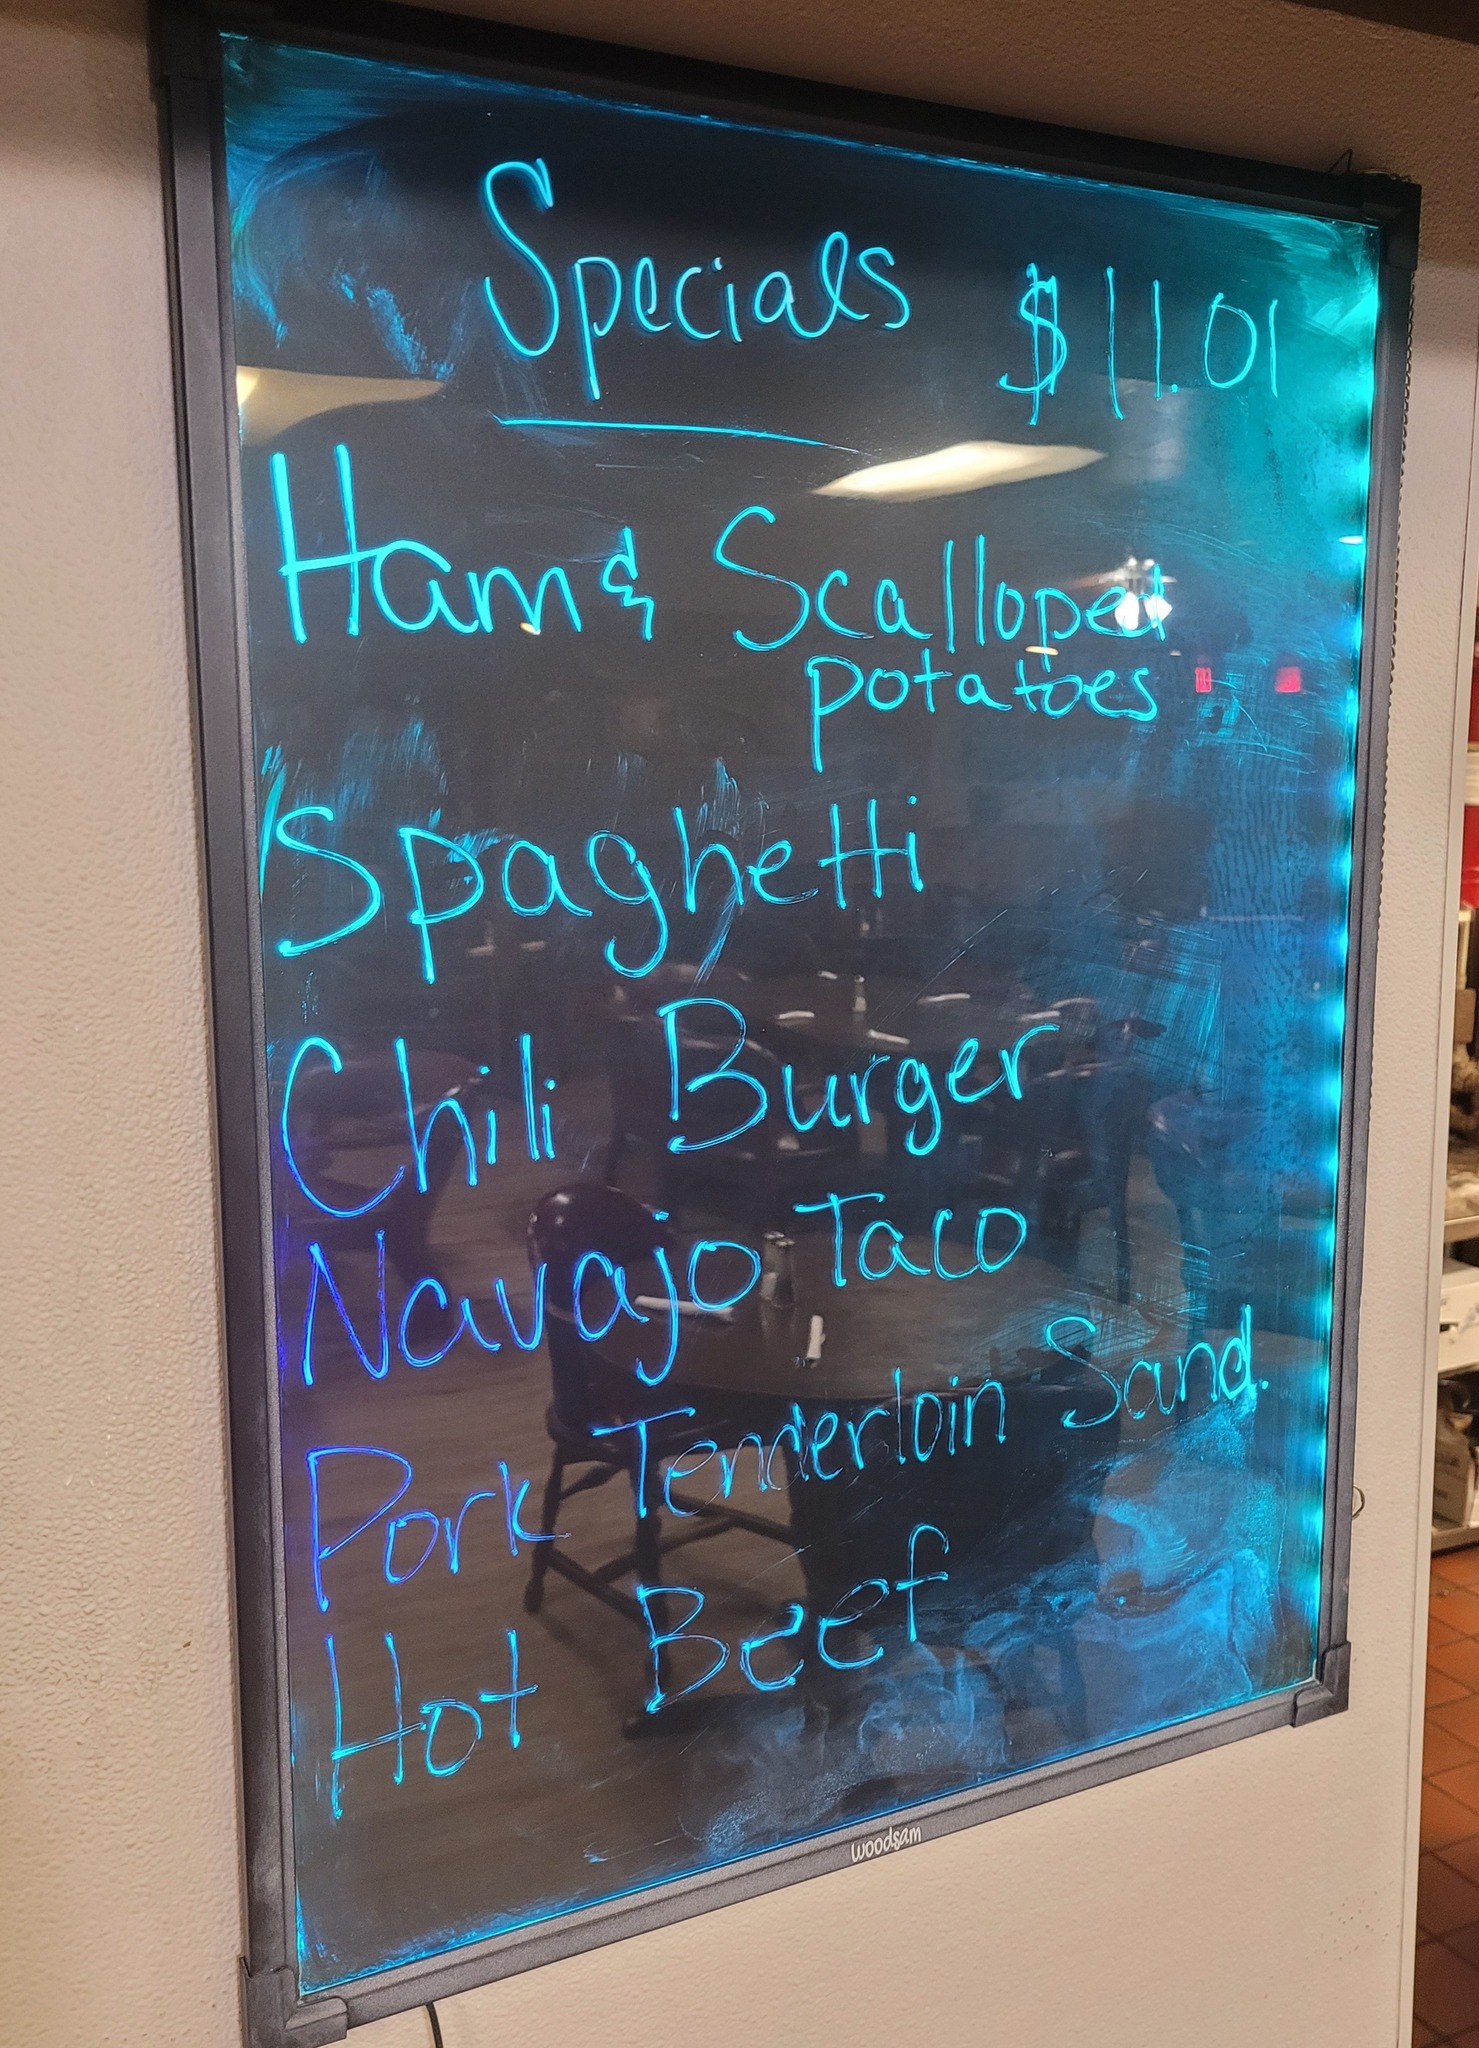 Specials $11.01
Ham & Scalloped
potatoes
Spaghetti
Chili Burger
Navajo Taco
Pork Tenderloin Sand.
Hot Beef
woodsam